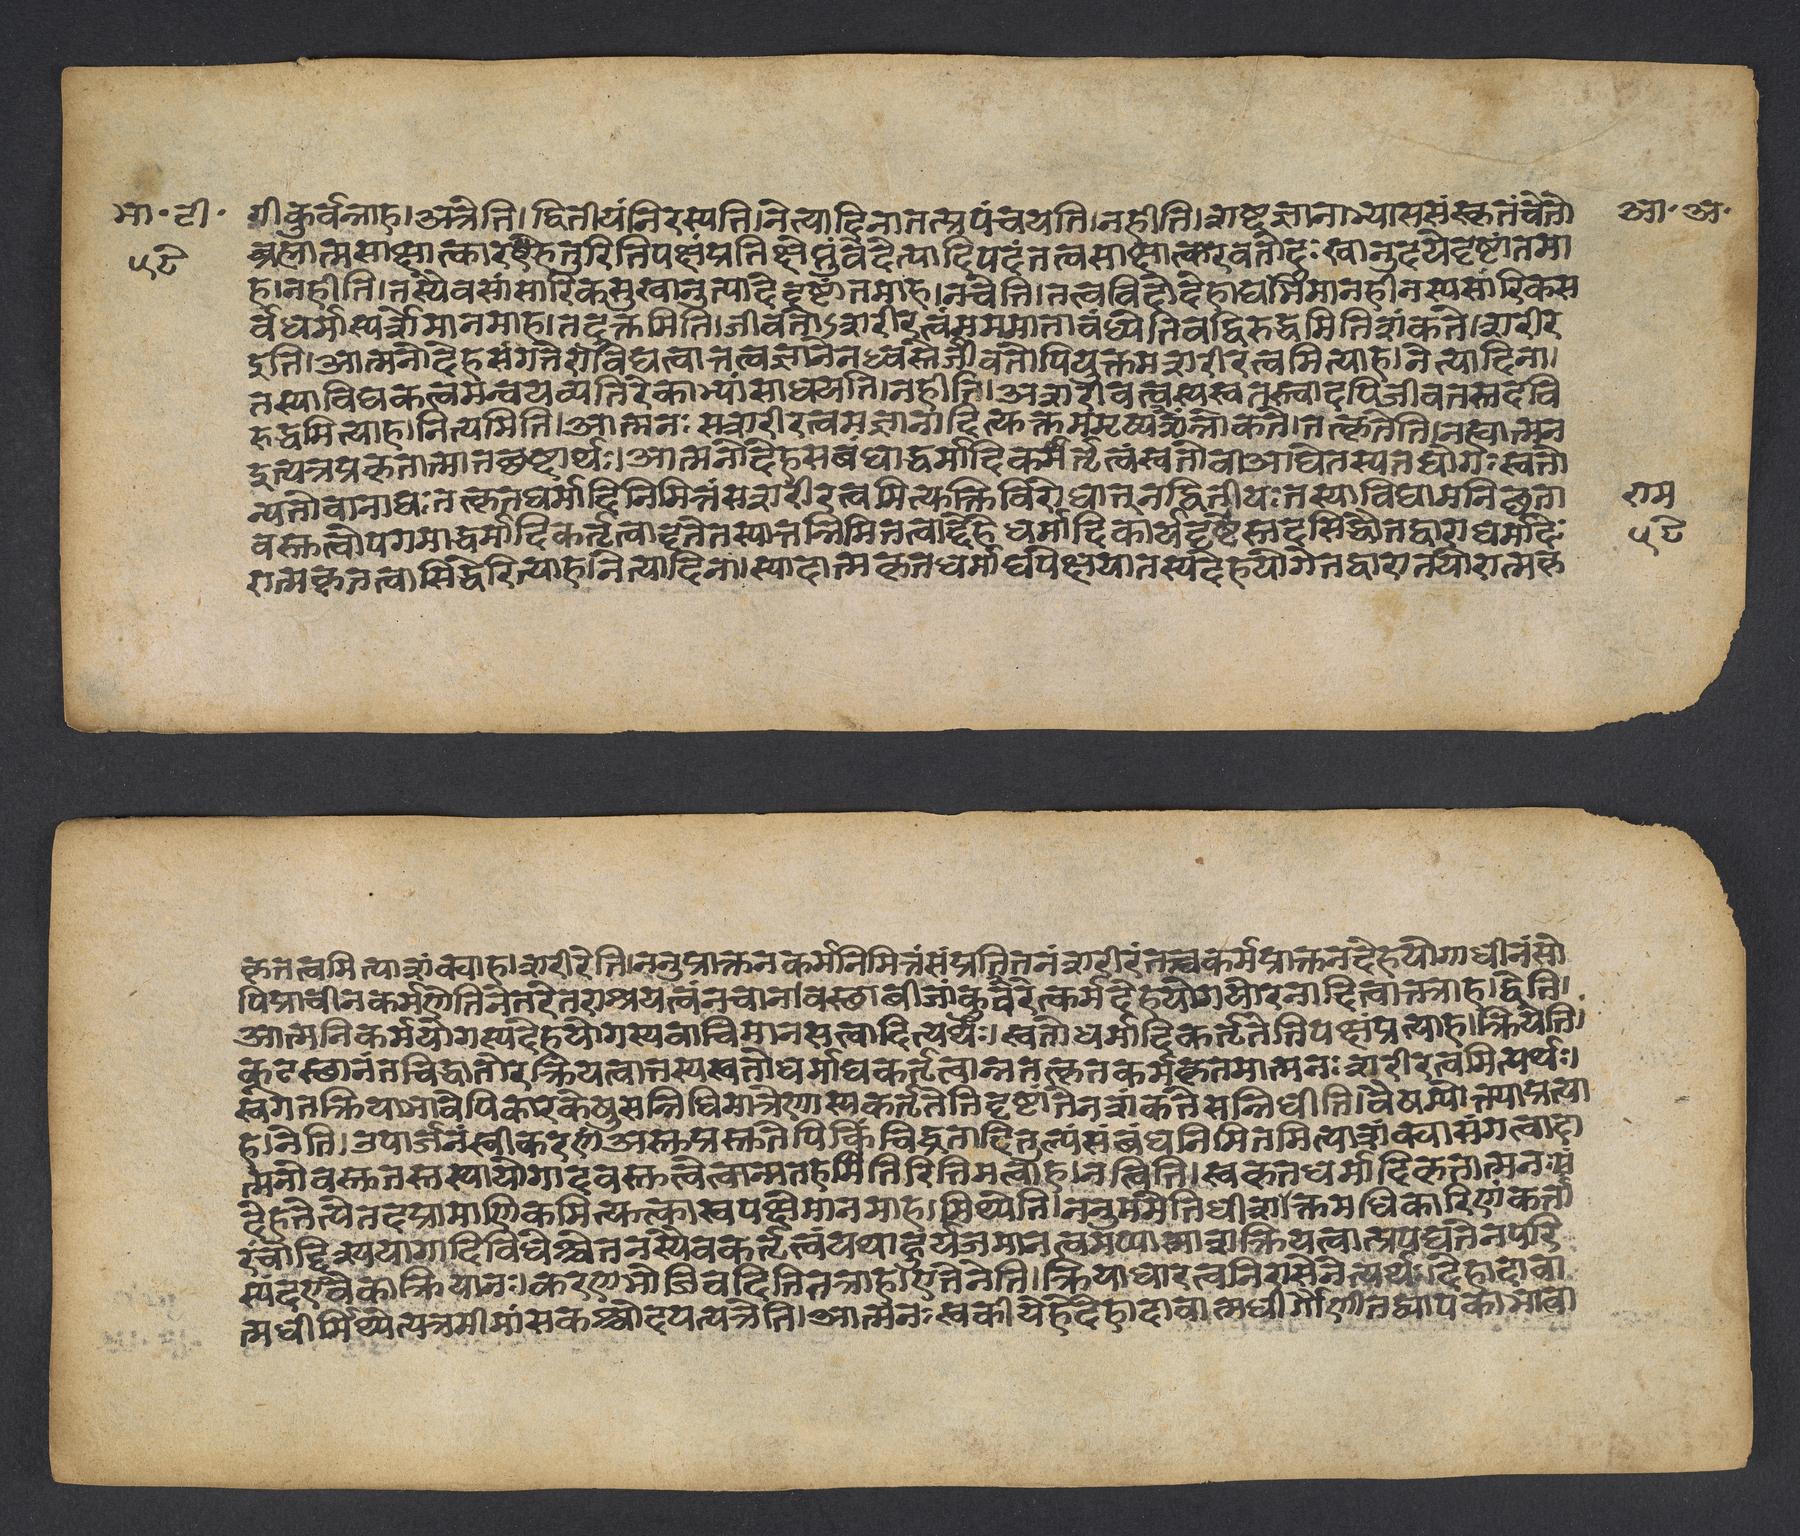 भा॰ टी॰
५८
आ॰ अ॰
गीकुर्वन्नाह।अत्रेति। द्वितीयंनिरस्यति।नेत्यादिनातत्प्रपंचयति।नहीति।शब्दज्ञानाभ्याससंस्कृतंचेतो
ब्रह्मात्मसाक्षात्कारहेतुरितिपक्षंप्रतिक्षेप्तुंवेदेत्यादिपदंतत्वसाक्षात्कारवतोदुःखानुदयेदृष्टांतमा
ह।नहीति।तस्यैवसांसारिकसुखानुत्पादेदृष्टांतमाह।नचेति।तत्वविदोदेहाद्यभिमानहीनस्यसांसारिकस
र्वधर्मास्पर्शेमानमाह।तदुक्तमिति।जीवतोऽशरीरत्वंमममातावंध्येतिवद्विरुद्धमितिशंकते।शरीर
इति।आत्मनोदेहसंगतेरविद्यत्वात्तत्वज्ञानेनध्वस्तेर्जीवतोपियुक्तमशरीरत्वमित्याह।नेत्यादिना।
तस्याविद्यकत्वमन्वयव्यतिरेकाभ्यांसाधयति।नहीति।अशरीरत्वस्यस्वतस्त्वादपिजीवतस्तदवि
रुद्धमित्याह।नित्यमिति।आत्मनः सशरीरत्वमज्ञानादित्युक्तममृष्यन्शंकते।तत्कृतेति।नत्वात्मन
इत्यत्रप्रकृतात्मातच्छब्दार्थः।आत्मनोदेहसंबंधाद्धर्मादिकर्तृत्वंस्वतोवाआद्येतस्यतद्योगः स्वतो
न्यतोवानाद्यः तत्कृतधर्मादिनिमित्तंसशरीरत्वमित्युक्तिविरोधात् नद्वितीयः तस्याविद्यामनिच्छता
राम
५८
वस्तुत्वोपगमाद्धर्मादिकर्तृत्वादृतेतस्यातन्निमित्तत्वाद्देहेधर्मादिकार्यदृष्टेस्तदसिद्धौतद्वाराधर्मादेः
रात्मकृतत्वासिद्धेरित्याह।नेत्यादिना।स्यादात्मकृतधर्माद्यपेक्षयातस्यदेहयोगेतद्द्वारातयोरात्मकृ
कृतत्वमित्याशंक्याह।शरीरेति।ननुप्राक्तनकर्मनिमित्तंसंप्रतितनंशरीरंतच्चकर्मप्राक्तनदेहयोगाधीनंसो
पिप्राचीनकर्मणेतिनेतरेतराश्रयत्वंनचानवस्थाबीजांकुरवत्कर्मदेहयोगयोरनादित्वात्तत्राह।द्वेति।
आत्मनिकर्मयोगस्यदेहयोगस्यवाविमानसत्वादित्यर्थः। स्वतोधर्मादिकर्तृतेतिपक्षंप्रत्याह।क्रियेति।
कूटस्थानंतचिद्धातोरक्रियत्वात्तस्यस्वतोधर्माद्यकर्तृत्वान्नतत्कृतकर्मकृतमात्मनः शरीरत्वमित्यर्थः।
स्वगतक्रियाभावेपिकारकेषुसन्निधिमात्रेणास्यकर्तृतेतिदृष्टांतेनशंकतेसन्निधीति।वैषम्योक्त्याप्रत्या
ह।नेति।उपार्जनंस्वीकरणंअस्तुप्रस्तुतेपिकिंचिद्भृतादितुल्यंसंबंधनिमित्तमित्याशंक्यासंगत्वादा
त्मनोवस्तुतस्तस्यायोगादवस्तुत्वेत्वान्मतहमितिरितिमत्वाह।नत्विति।स्वकृतधर्मादिकृतात्मनःसं
देहतेत्येतदप्रामाणिकमित्युक्त्वास्वपक्षेमानमाह।मिथ्येति।ननुममेतिधीशक्तमधिकारिणंकर्तो
रंचोद्दिश्ययागादिविधेश्चेतनस्यैवकर्तृत्वंयथाहुर्यजमानत्वमप्यात्माशक्रियत्वात्प्रपद्यतेनपरि
स्पंदएवैकाक्रियानः।करणभोजिवदितितत्राह।एतेनेति।क्रियाधारत्वनिरासेनेत्यर्थः।देहादावा
त्मधीर्मिथ्येत्यत्रमीमांसकश्चोदयत्यत्रेति।आत्मनः स्वकीयेहेदेहादावात्मधीर्गौणीतद्व्यापकाभावा